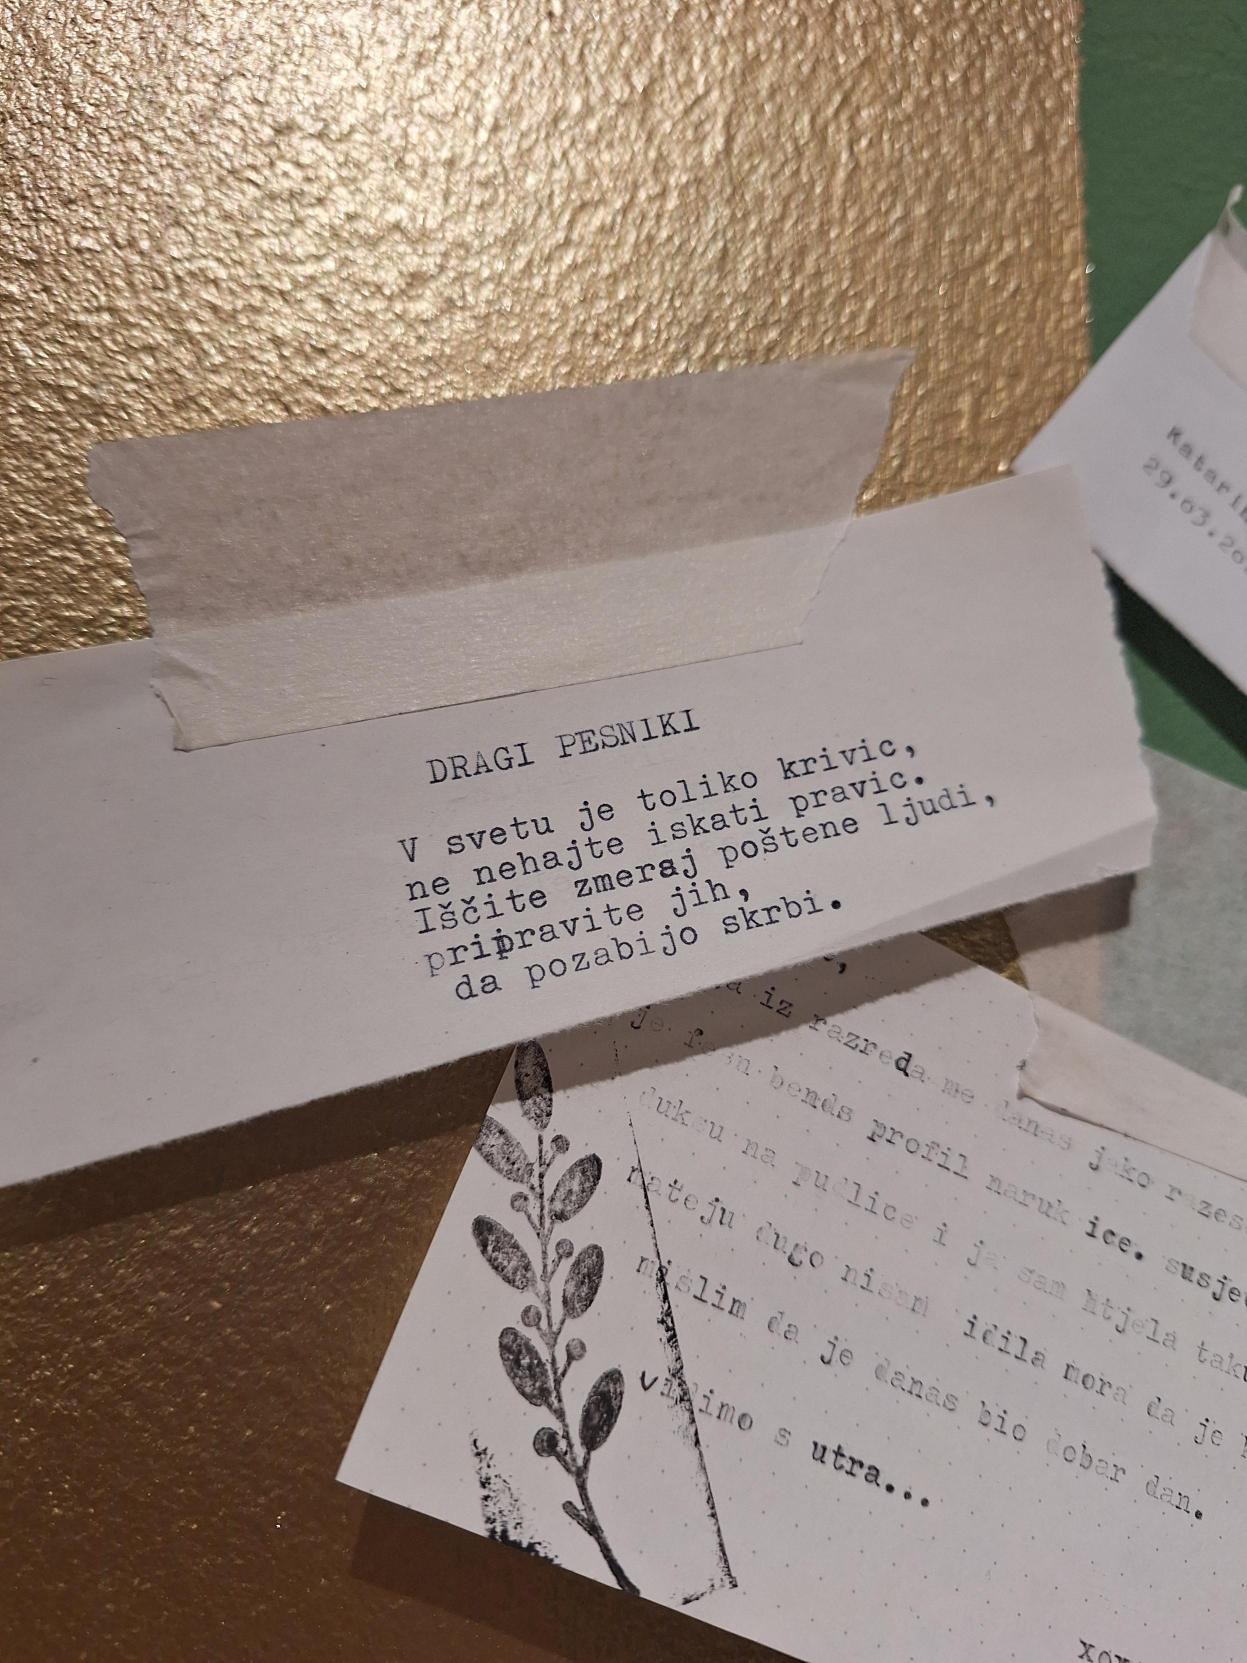 DRAGI PESNIKI
V svetu je toliko krivic,
ne nehajte iskati pravic.
Iščite zmeraj poštene ljudi,
pripravite jih,
da pozabijo skrbi.
iz razreda me danas jako
je bends profil naruk ice. susje
duksu na pudlice i ja sam htjela
mateju dugo nisam idila mora da je
mislim da je danas bio dobar dan.
vidimo s utra...
29.03.